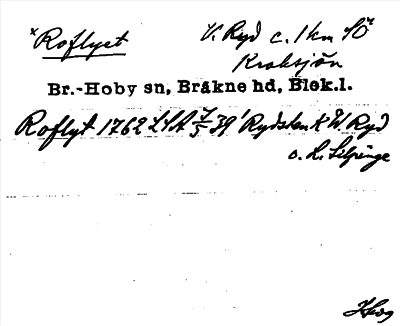 *Roflyet V. Ryd c. 1 km SO
Kroksjön
Br.-Hoby sn, Bräkne hd, Blek.l.
Roflyt 1762 LSA 7/5 39 Ryd
o. L. Silpinge